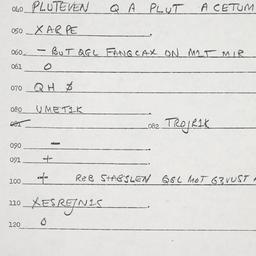 040 PLUTEVEN Q A PLUT ACETUM
050 XARPE
060 — BUT QGL FANGCAX ON M2T MIR
061 O
070 QH Ø
080 UMET1K
081 082 TROJR1K
090 —
091 +
100 + REB QGL MOT G3VUST
110 XESREJN1S
120 O